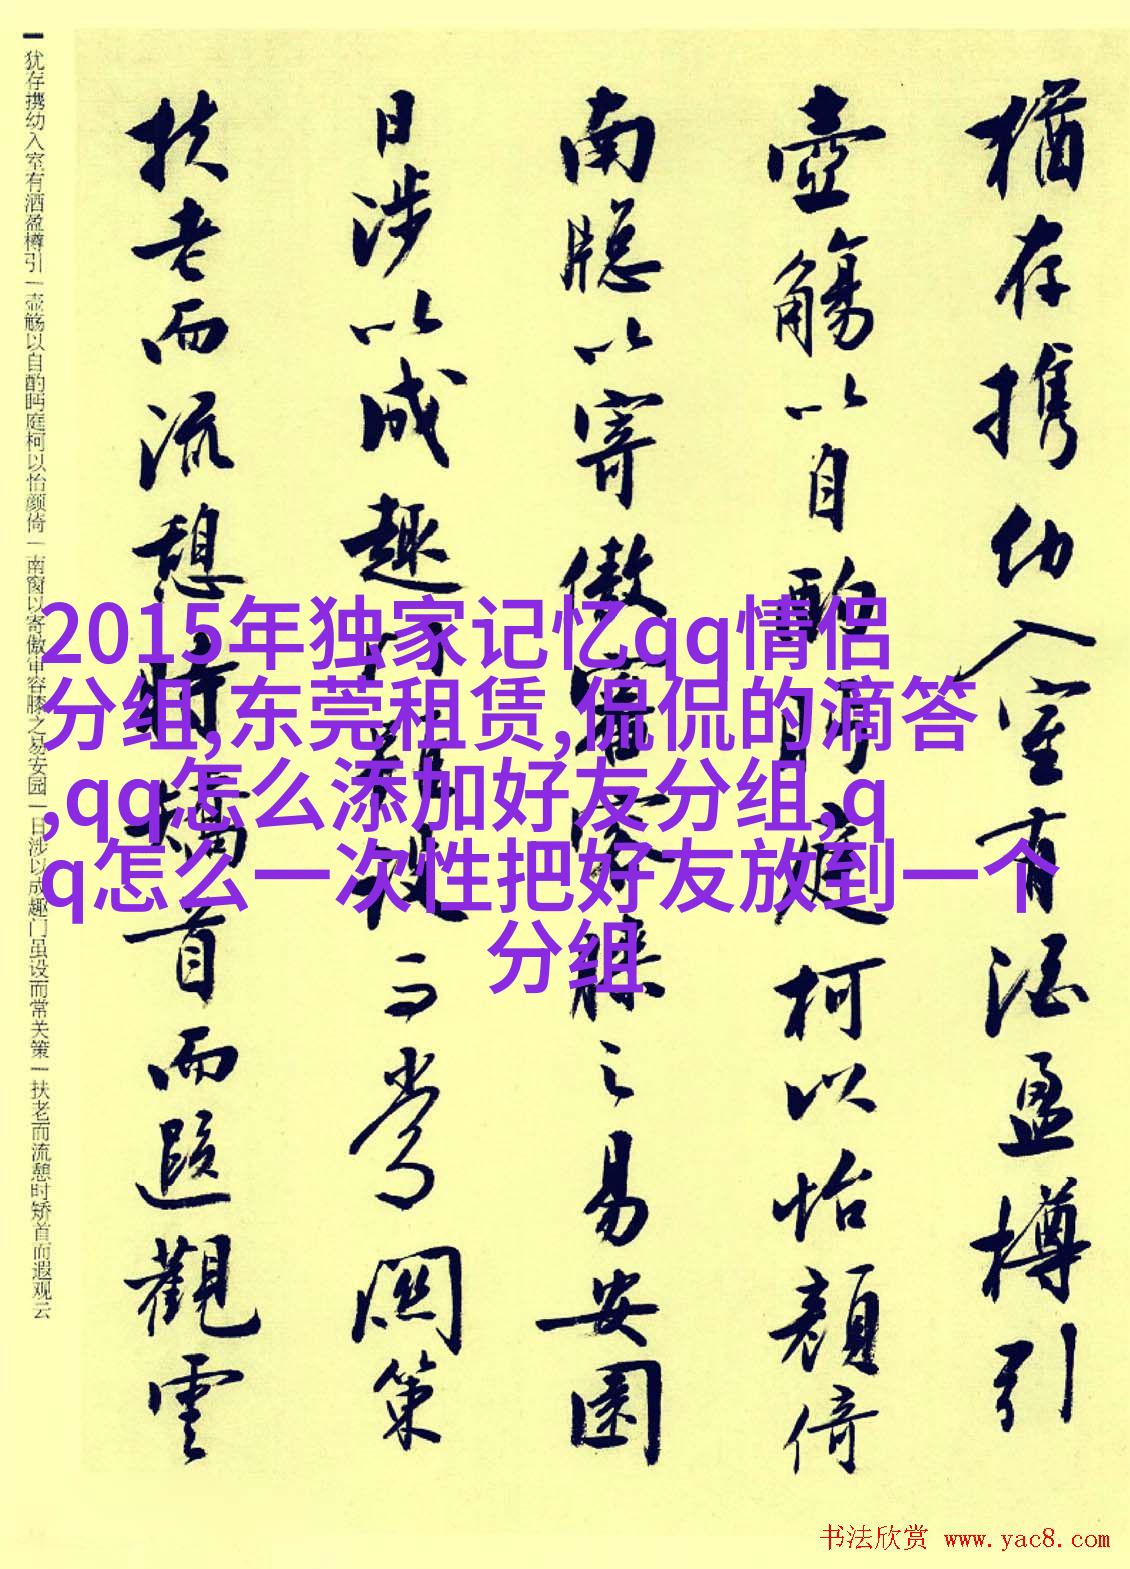 猶存携幼入室有酒盈樽引
壶觴以自酌眄庭柯以怡颜倚
南牕以寄傲審容膝之易安園
日涉以成趣門雖設而常関策
扶老而流憩時矯首而遐觀雲
犹存携幼入室有酒盈樽引一壶觞以自酌眄庭柯以怡颜倚一南窗以寄傲审容膝之易安园一日涉以成趣门虽设而常关策一扶老而流憩时矫首而遐观云
2015年独家记忆qq情侣
分组,东莞租赁,侃侃的滴答
,qq怎么添加好友分组,q
q怎么一次性把好友放到一个
分组
书法欣赏 www.yac8.com